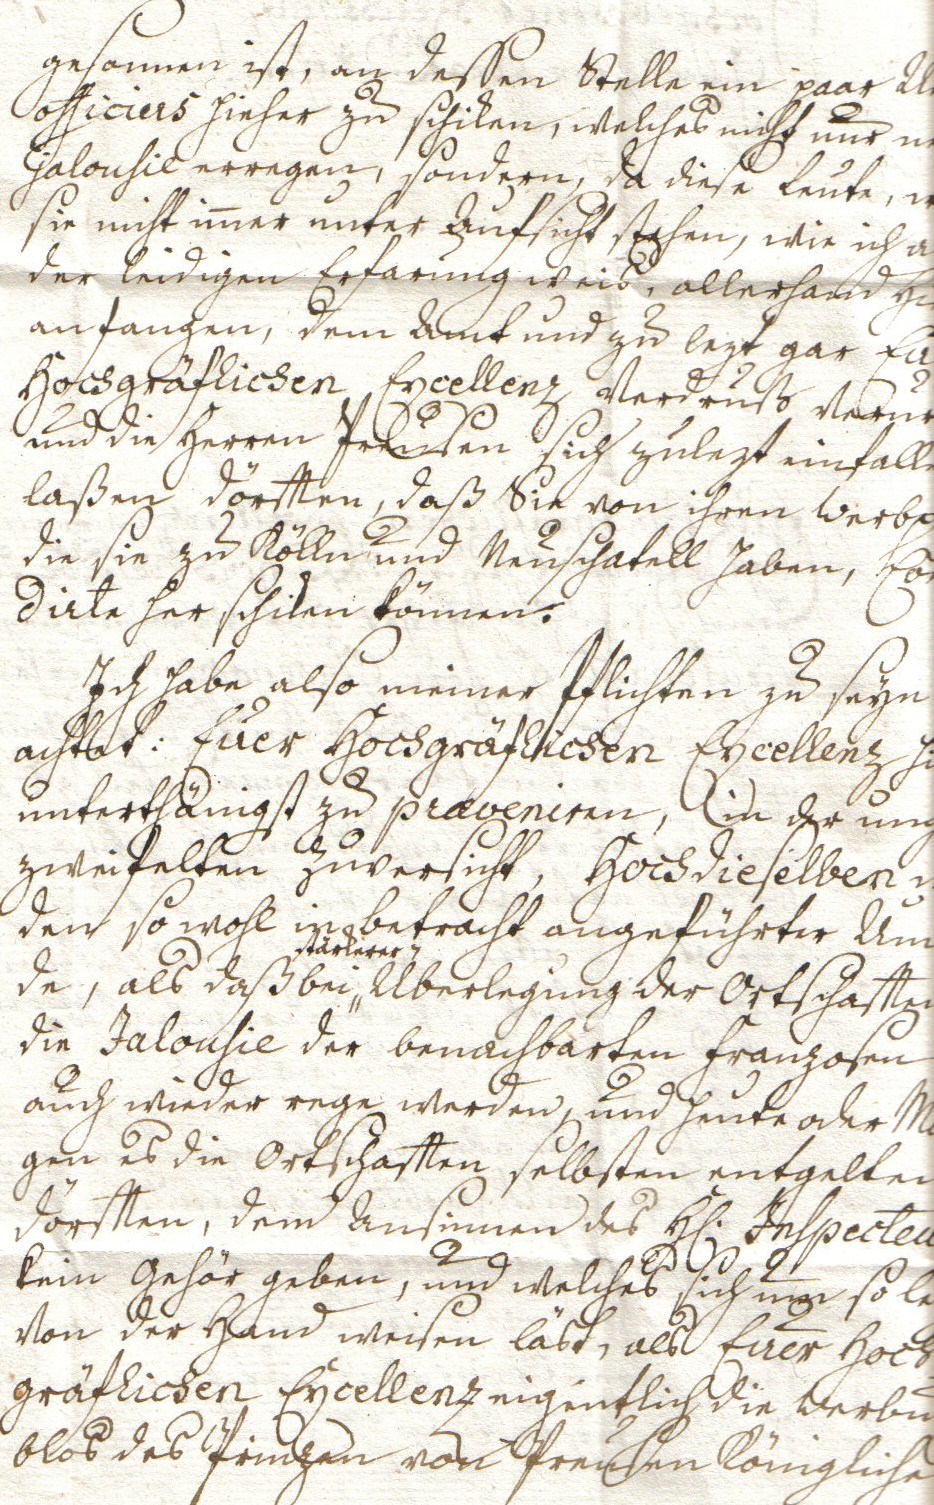 gesonnen ist, an dessen Stelle ein paar Un
officiers hieher zu schiken, welches nicht nur
jalousie erregen, sondern, da diese Leute,
sie nicht im̄er unter Aufsicht stehen, wie ich
der leidigen Erfarung weis, allerhand
anfangen, dem Amt und zu lezt gar Eu
Hochgräflichen Excellenz Verdruß verur
und die Herren Preusen sich zulezt einfalle
laßen dörfften, daß Sie von ihren Werbp
die sie zu Kölln und Neuschatell haben,
dirte her schiken können.
Ich habe also meiner Pflichten zu seyn
achtet: Euer Hochgräflichen Excellenz hi
unterthänigst zu praeveniren, in der ung
zweifelten Zuversicht, Hochdieselben
den so wohl in betracht angeführter Um
de, als daß bei stärkerer Uberlegung der Ortschafften
die Jalousie der benachbarten Franzosen
auch wieder rege werden, und heute oder Mo
gen es die Ortschafften selbsten entgelten
dörfften, dem Ansinnen des H. Inspecteu
kein Gehör geben, und welches sich um so le
von der Hand weisen läst, als Euer Hoch
gräflichen Excellenz eigentlich die Werbu
blos des Prinzen von Preusen Königliche